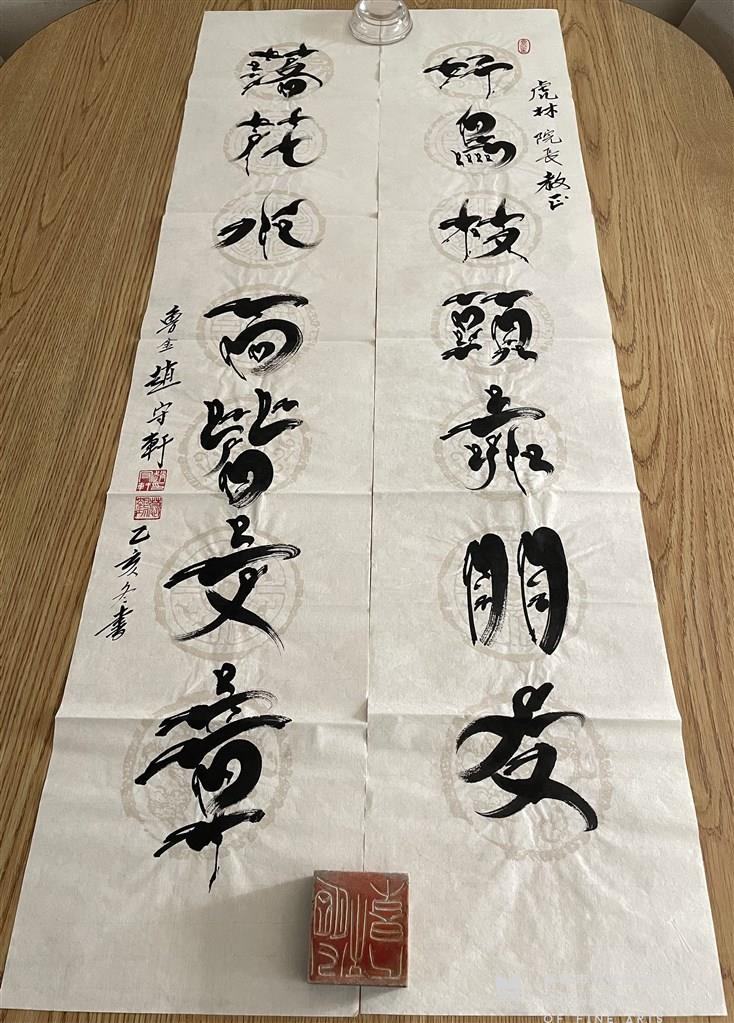 虎林院長教正
好鳥枝頭亦朋友
落花水面皆文章
趙守軒
乙亥冬書
OF FINE ARTS